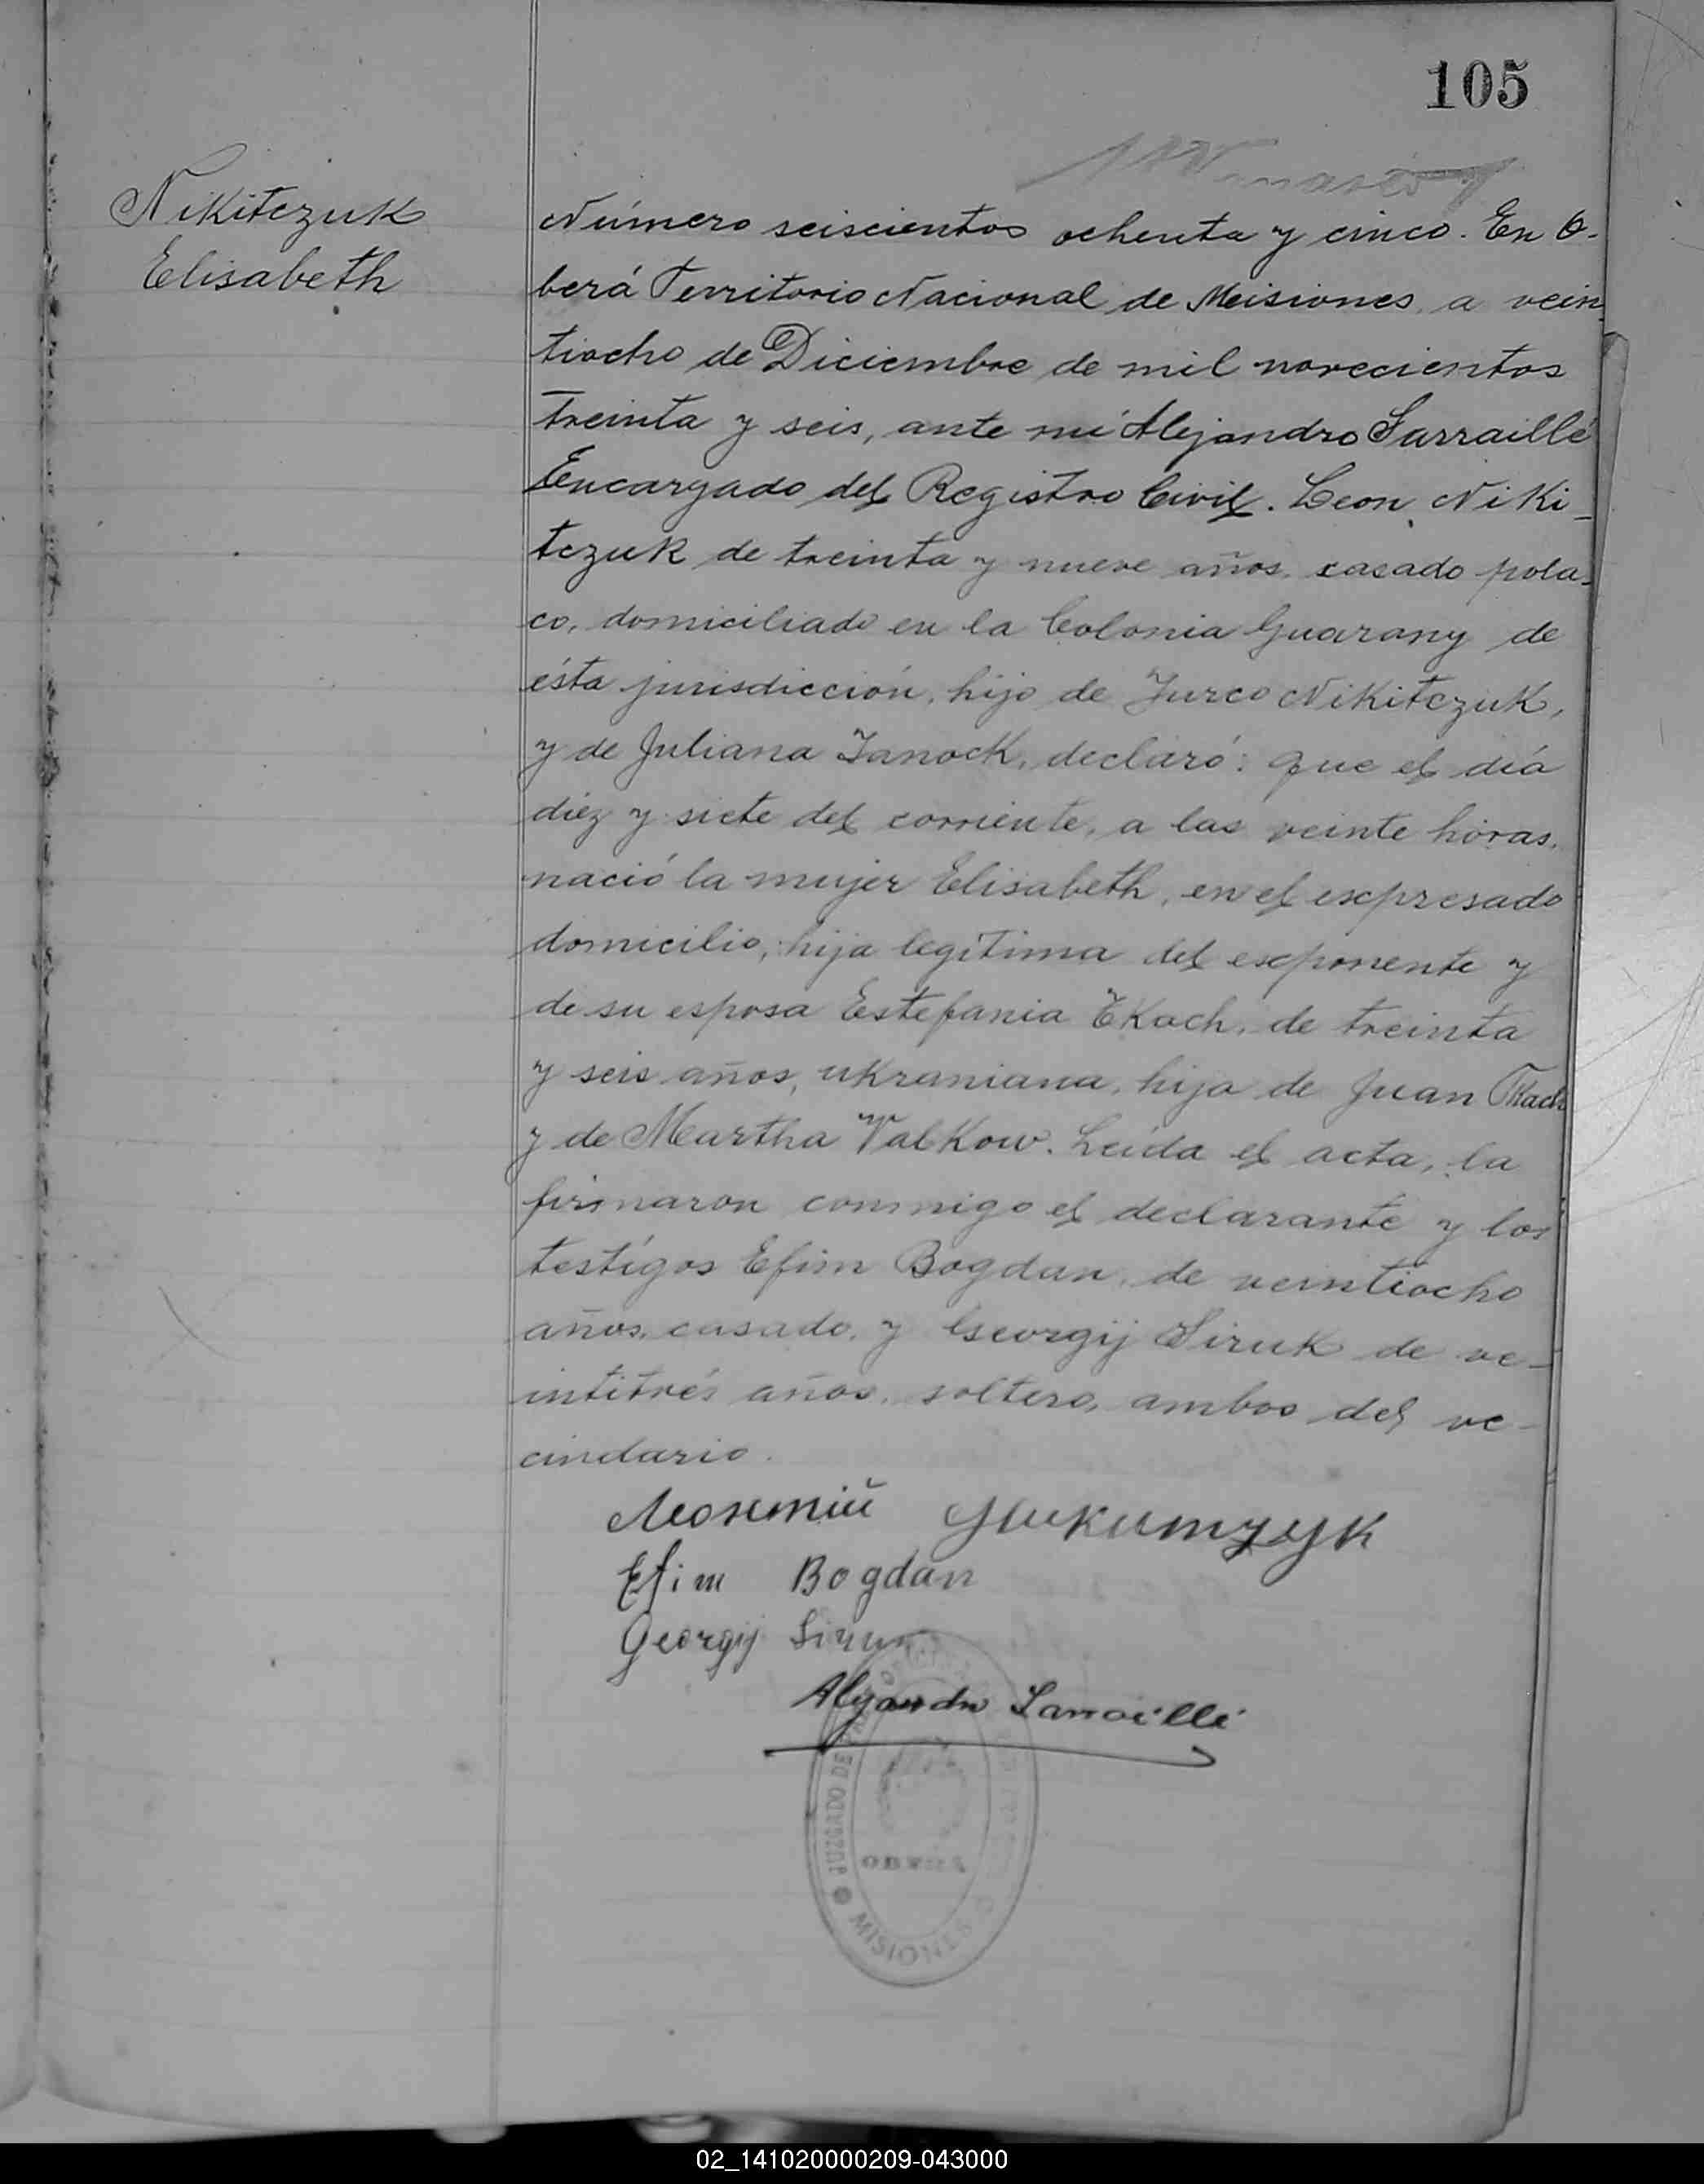 105
Nikitczuk
Elisabeth
Número seiscientos ochenta y cinco. En O-
berá Territorio Nacional de Misiones, a vein
tiocho de Diciembre de mil novecientos
treinta y seis, ante mí Alejandro Sarraillé
Encargado del Registro Civil. Leon Niki-
tczuk de treinta y nueve años, casado pola-
co, domiciliado en la Colonia Guarany de
ésta jurisdicción, hijo de Jurco Nikitczuk,
y de Juliana Ianock, declaró: que el día
diéz y siete del corriente, a las veinte horas,
nació la mujer Elisabeth, en el expresado
domicilio, hija legítima del exponente y
de su esposa Estefania Tkach, de treinta
y seis años, ukraniana, hija de Juan Tkach
y de Martha Valkow. Leída el acta, la
firmaron conmigo el declarante y los
testígos Efim Bogdan, de veintiocho
años, casado, y Georgij Siruk de ve-
intitrés años, soltero, ambos del ve-
cindario.
Efim Bogdan
Georgij Siruk
Alejandro Sarraillé
JUZGADO DE PAZ
OBERÁ
MISIONES
02_141020000209-043000